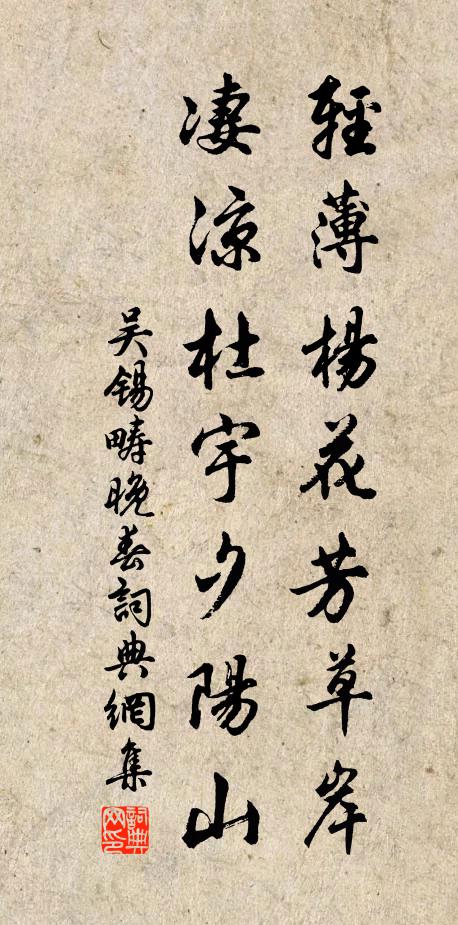 輕薄楊花芳草岸
凄涼杜宇夕陽山
吴錫疇晚春詞典網集
詞典网印